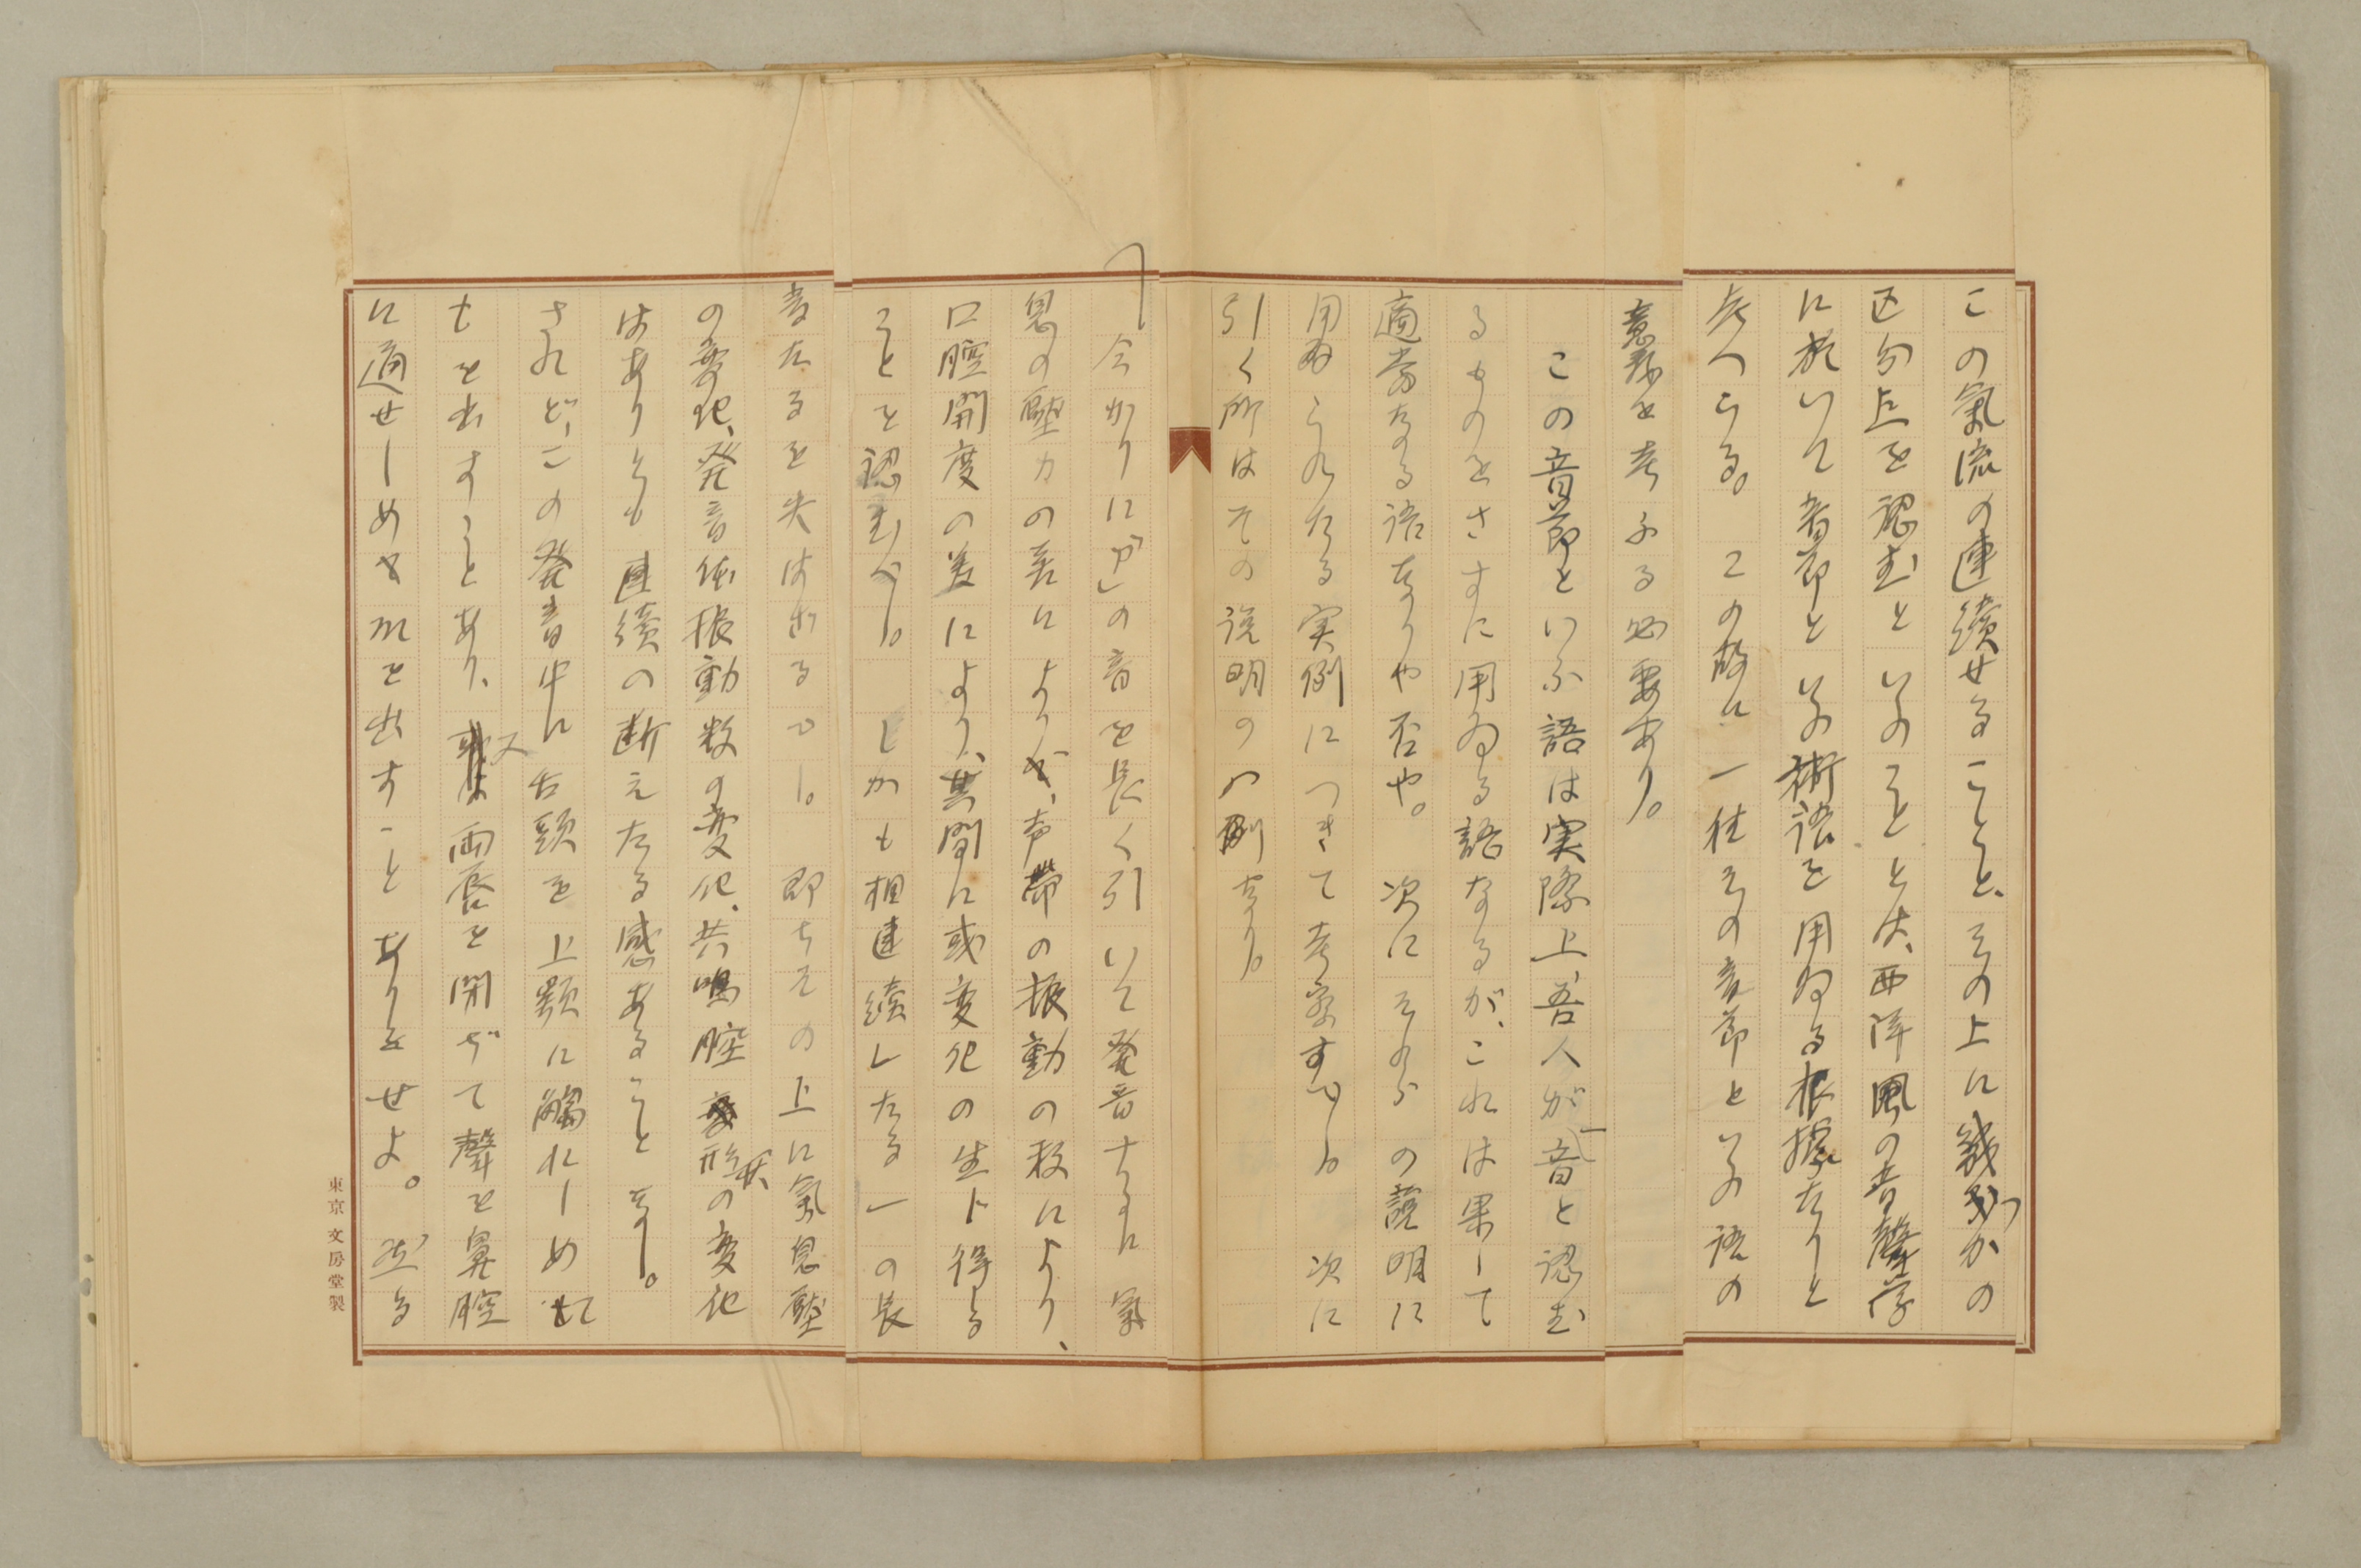 この氣流の連續せること、その上に幾つかの
区分点を認むといふことは、西洋風の音聲学
に於いて音節といふ術語を用ゐる根據たりと
考へらる。この故に一往その音節といふ語の
意義を考ふる必要あり。
この音節といふ語は実際上、吾人が一音と認む
るものをさすに用ゐる語なるが、これは果して
適當なる語なりや否や。次にそれらの説明に
用ゐられたる実例につきて考察すべし。次に
引く所はその説明の一例なり。
今かりに「ア」の音を長く引いて発音するに氣
息の壓力の差によりて、声帶の振動の数により、
口腔開度の差により、其間に或変化の生じ得る
ことを認むべし。しかも相連續したる一の長
音たるを失はざるべし。即ちその上に氣息壓
の変化、発音体振動数の変化、共鳴腔形状の変化
はありとも連續の断えたる感あることなし。
されど、この発音中に舌頭を上顎に觸れしめて
もを出すことあり、又両唇を閉ぢて聲を鼻腔
に通せしめてmを出すことありとせよ。然る
東京 文房堂製